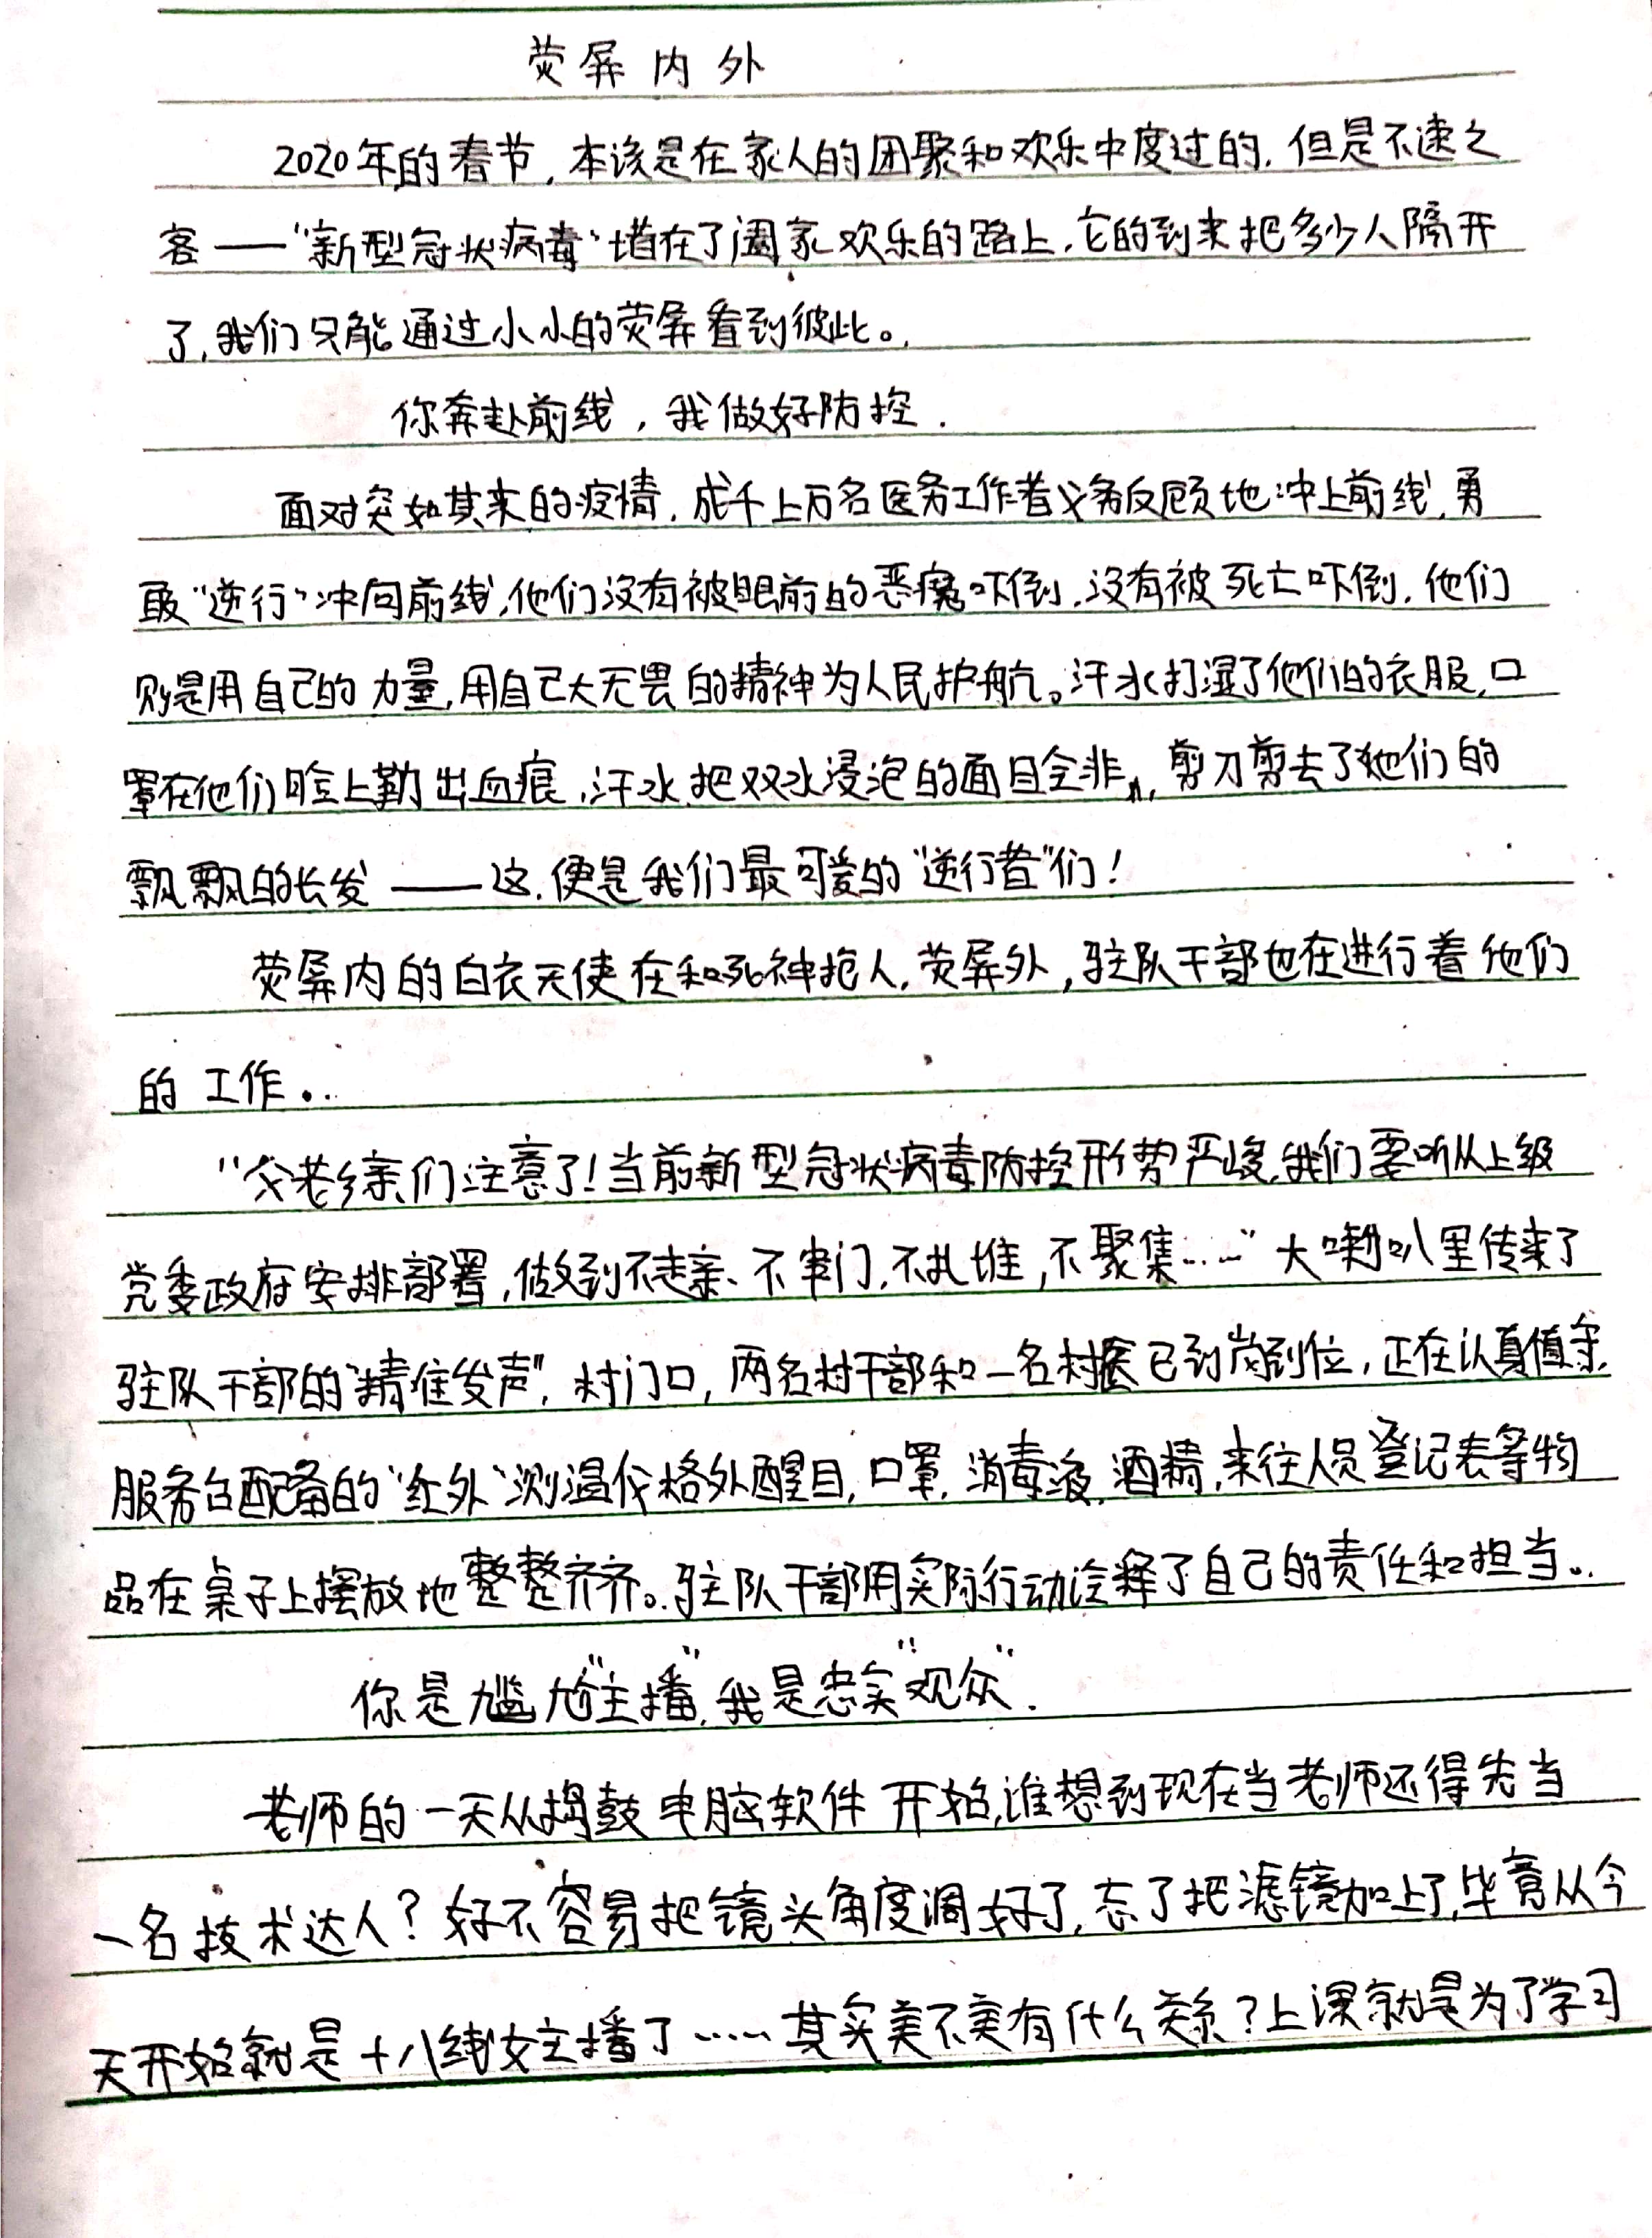 荧屏内外
2020年的春节,本该是在家人的团聚和欢乐中度过的,但是不速之
客——“新型冠状病毒”堵在了阖家欢乐的路上,它的到来把多少人隔开
了,我们只能通过小小的荧屏看到彼此。
你奔赴前线,我做好防控.
面对突如其来的疫情,成千上万名医务工作者义务反顾地冲上前线,勇
敢“逆行”冲向前线,他们没有被眼前的恶魔吓倒,没有被死亡吓倒,他们
则是用自己的力量,用自己大无畏的精神为人民护航。汗水打湿了他们的衣服,口
罩在他们脸上勒出血痕,汗水把双水浸泡的面目全非,剪刀剪去了她们的
飘飘的长发——这,便是我们最可爱的“逆行者”们!
荧屏内的白衣天使在和死神抢人,荧屏外,驻队干部也在进行着他们
的工作..
“父老乡亲们注意了!当前新型冠状病毒防控形势严峻,我们要听从上级
党委政府安排部署,做到不走亲、不串门,不扎堆,不聚集……”大喇叭里传来了
驻队干部的“精准发声”,村门口,两名村干部和一名村医已到岗到位,正在认真值守,
服务台配备的“红外”测温仪格外醒目,口罩,消毒液,酒精,来往人员登记表等物
品在桌子上摆放地整整齐齐。驻队干部用实际行动诠释了自己的责任和担当。
你是尴尬“主播”,我是忠实“观众”.
老师的一天从捣鼓电脑软件开始,谁想到现在当老师还得先当
一名技术达人?好不容易把镜头角度调好了,忘了把滤镜加上了,毕竟从今
天开始就是十八线女主播了……其实美不美有什么关系?上课就是为了学习